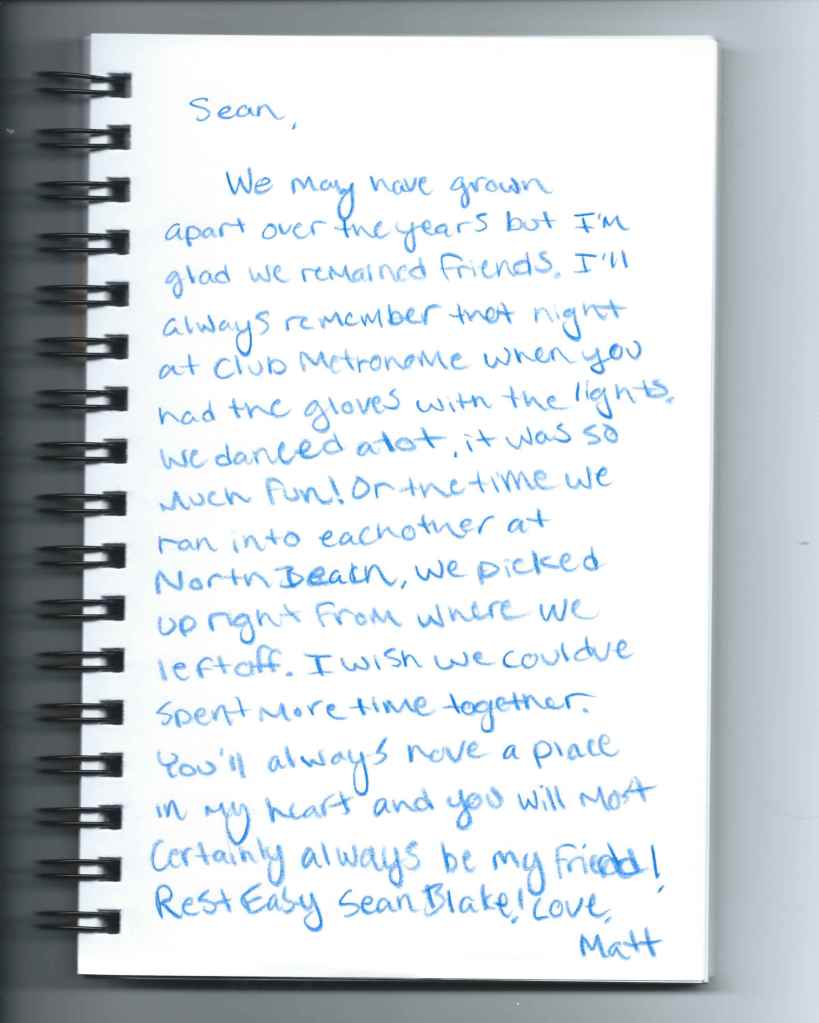 Sean,
We may have grown
apart over the years but I'm
glad we remained friends. I'll
always remember that night
at Club Metronome when you
had the gloves with the lights.
We danced alot, it was so
much fun! Or the time we
ran into eachother at
North Beach, we picked
up right from where we
left off. I wish we couldve
spent more time together.
You'll always have a place
in my heart and you will most
certainly always be my friend!
Rest Easy Sean Blake! Love,
Matt